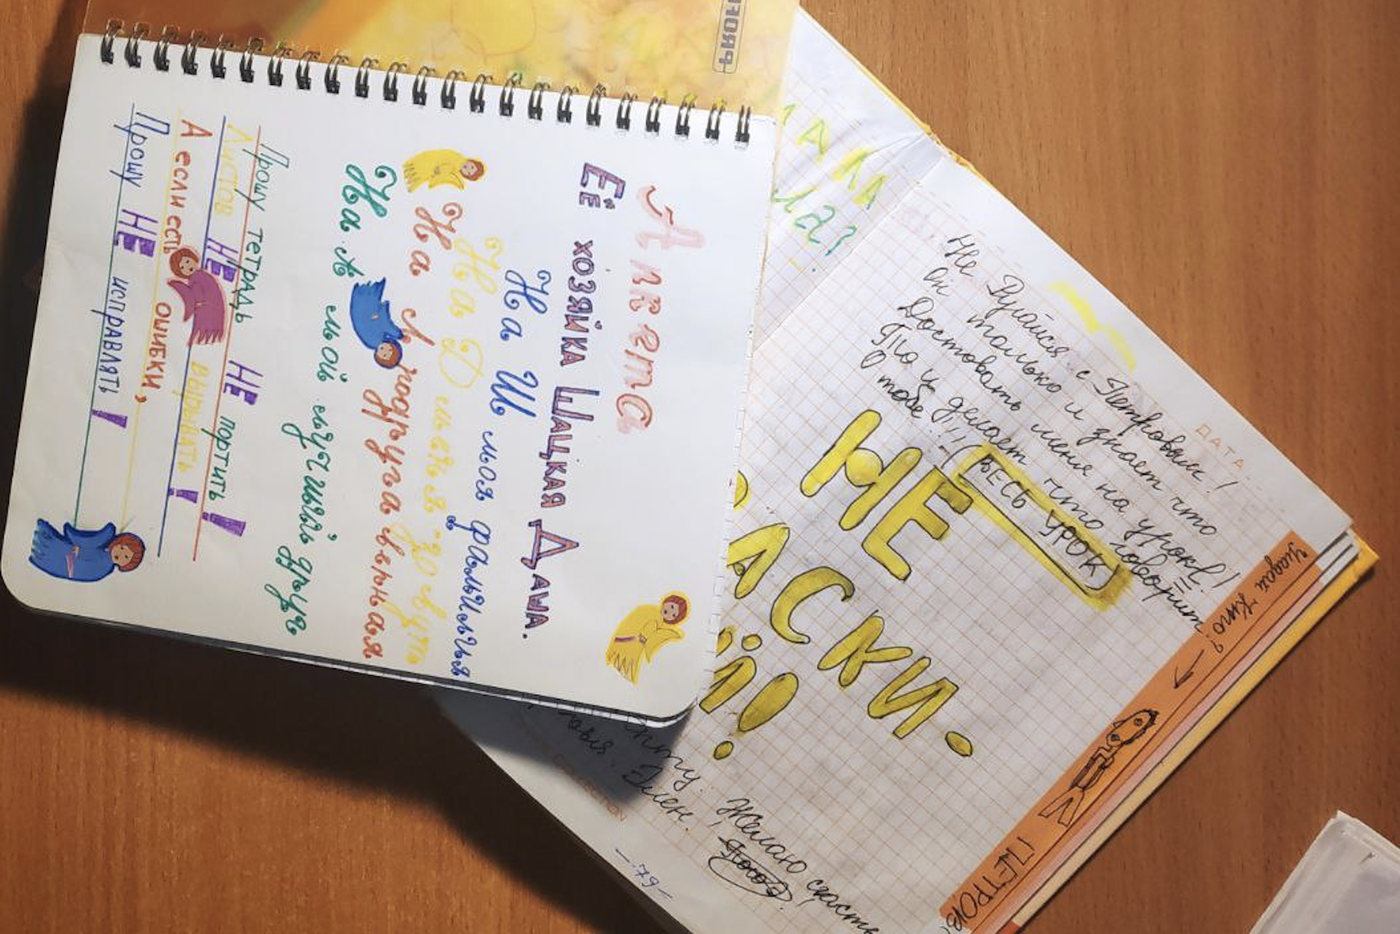 PROFF
Анкета
Её хозяйка Шацкая Даша.
На Ш моя фамилья
На Д меня зовут
На Л подруга верная
На А мой лучший друг
Прошу тетрадь НЕ портить!
Листов НЕ вырывать!
А если есть ошибки,
Прошу НЕ исправлять!
ДАТА
Не Ругайся с Петровым!
он только и знает что
Доставать меня на уроке!
Па и делает что говорит
О тебе!!! (ВЕСЬ УРОК
НЕ
АСКИ-
Й!
Угадай Кто!
ПЕТРОВ
Элен.
Желаю счасть